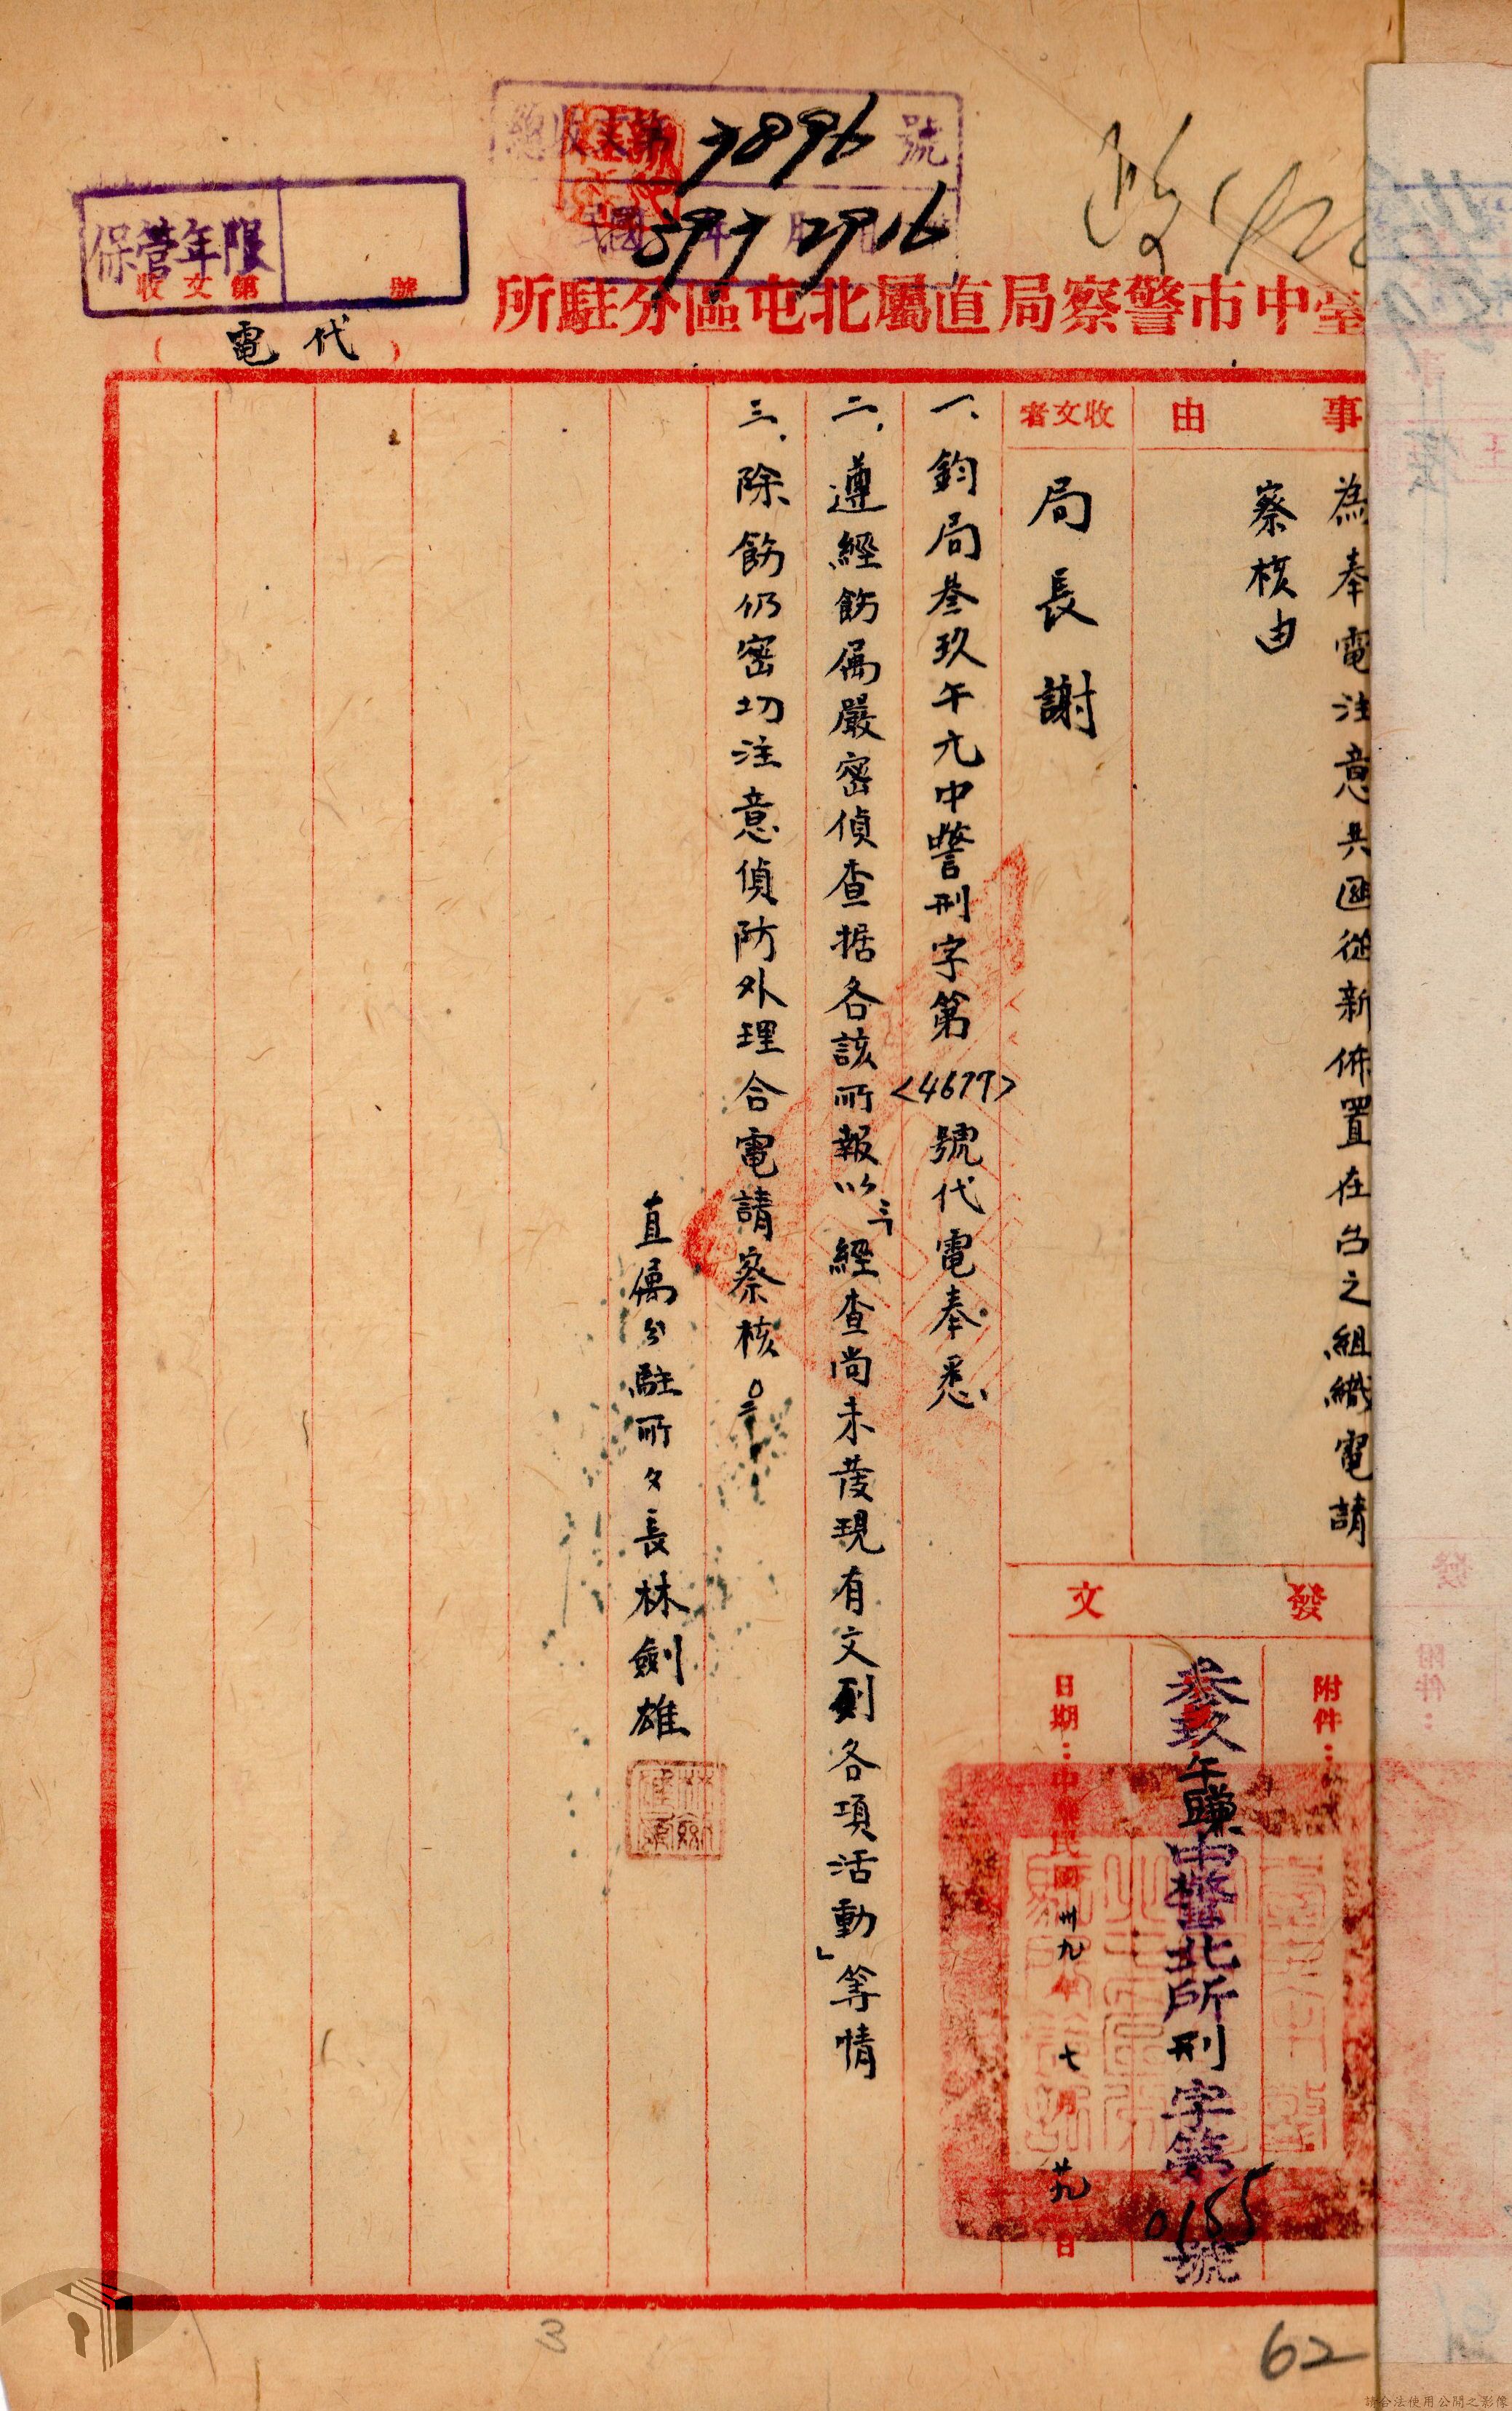 總收文第 7896 號
民國 39年 7月 29 16
政
保管年限
收文第 號
臺中市警察局直屬北屯區分駐所
(代電)
事由
為奉電注意共匪從新佈置在台之組織電請
察核由
收文者
局長謝
發文
附件：
叁玖午賺中警北所刑字第0155號
日期：中華民國卅九年七月廿九日
一、鈞局叁玖午亢中警刑字第<4677>號代電奉悉
二、遵經飭屬嚴密偵查据各該所報以「經查尚未發現有文列各項活動」等情
三、除飭仍密切注意偵防外理合電請察核
直屬分駐所々長林劍雄
3
62
請合法使用公開之影像